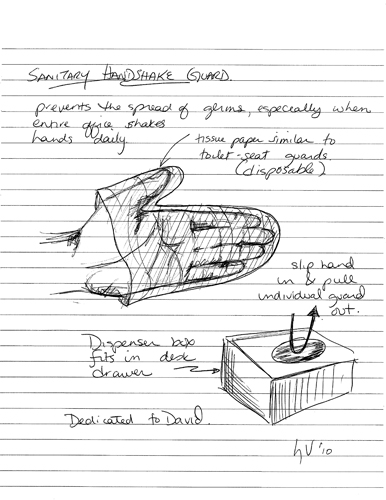 SANITARY HANDSHAKE GUARD.
prevents the spread of germs, especially when
entire office shakes
hands daily.
tissue paper similar to
toilet-seat guards.
(disposable)
slip hand
in & pull
individual guard
out.
Dispenser box
fits in desk
drawer
Dedicated to David.
hV '10